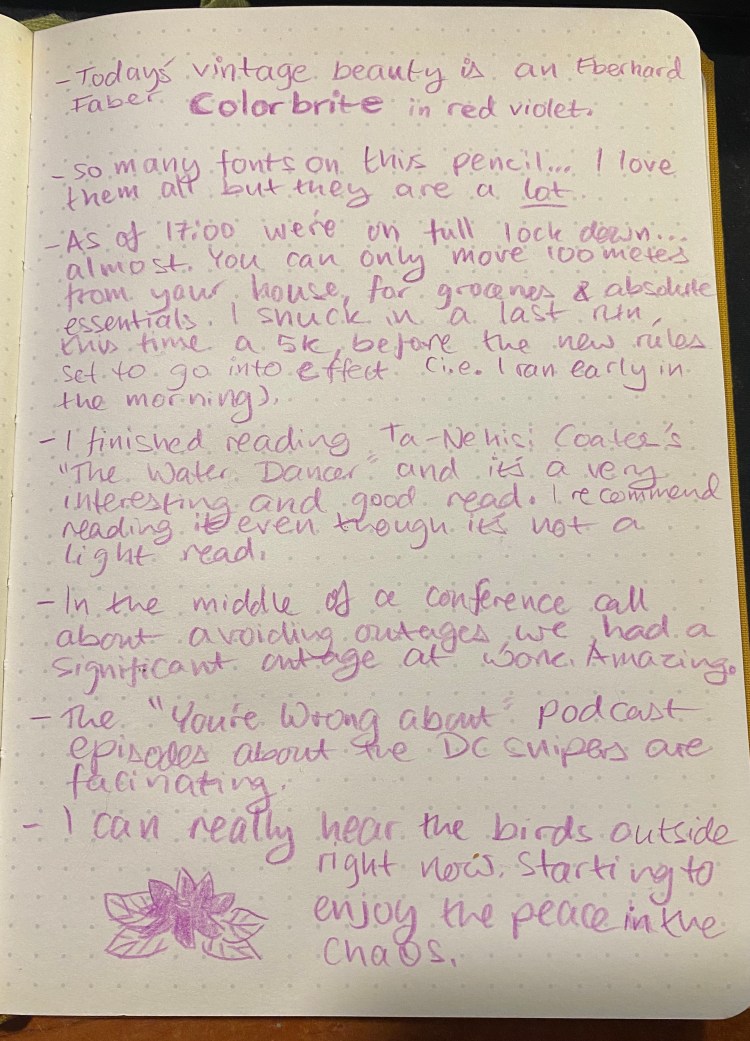 - Today's vintage beauty is an Eberhard
Faber Colorbrite in red violet.
- So many fonts on this pencil... I love
them all but they are a lot.
- As of 17:00 we're on full lock down...
almost. You can only move 100 meters
from your house, for groceries & absolute
essentials. I snuck in a last run,
this time a 5k, before the new rules
set to go into effect. (i.e. I ran early in
the morning).
- I finished reading Ta-Nehisi Coates's
"The Water Dancer" and it's a very
interesting and good read. I recommend
reading it even though it's not a
light read.
- In the middle of a conference call
about avoiding outages we had a
significant outage at work. Amazing.
- The "You're Wrong about" podcast
episodes about the DC snipers are
facinating.
- I can really hear the birds outside
right now. Starting to
enjoy the peace in the
chaos.